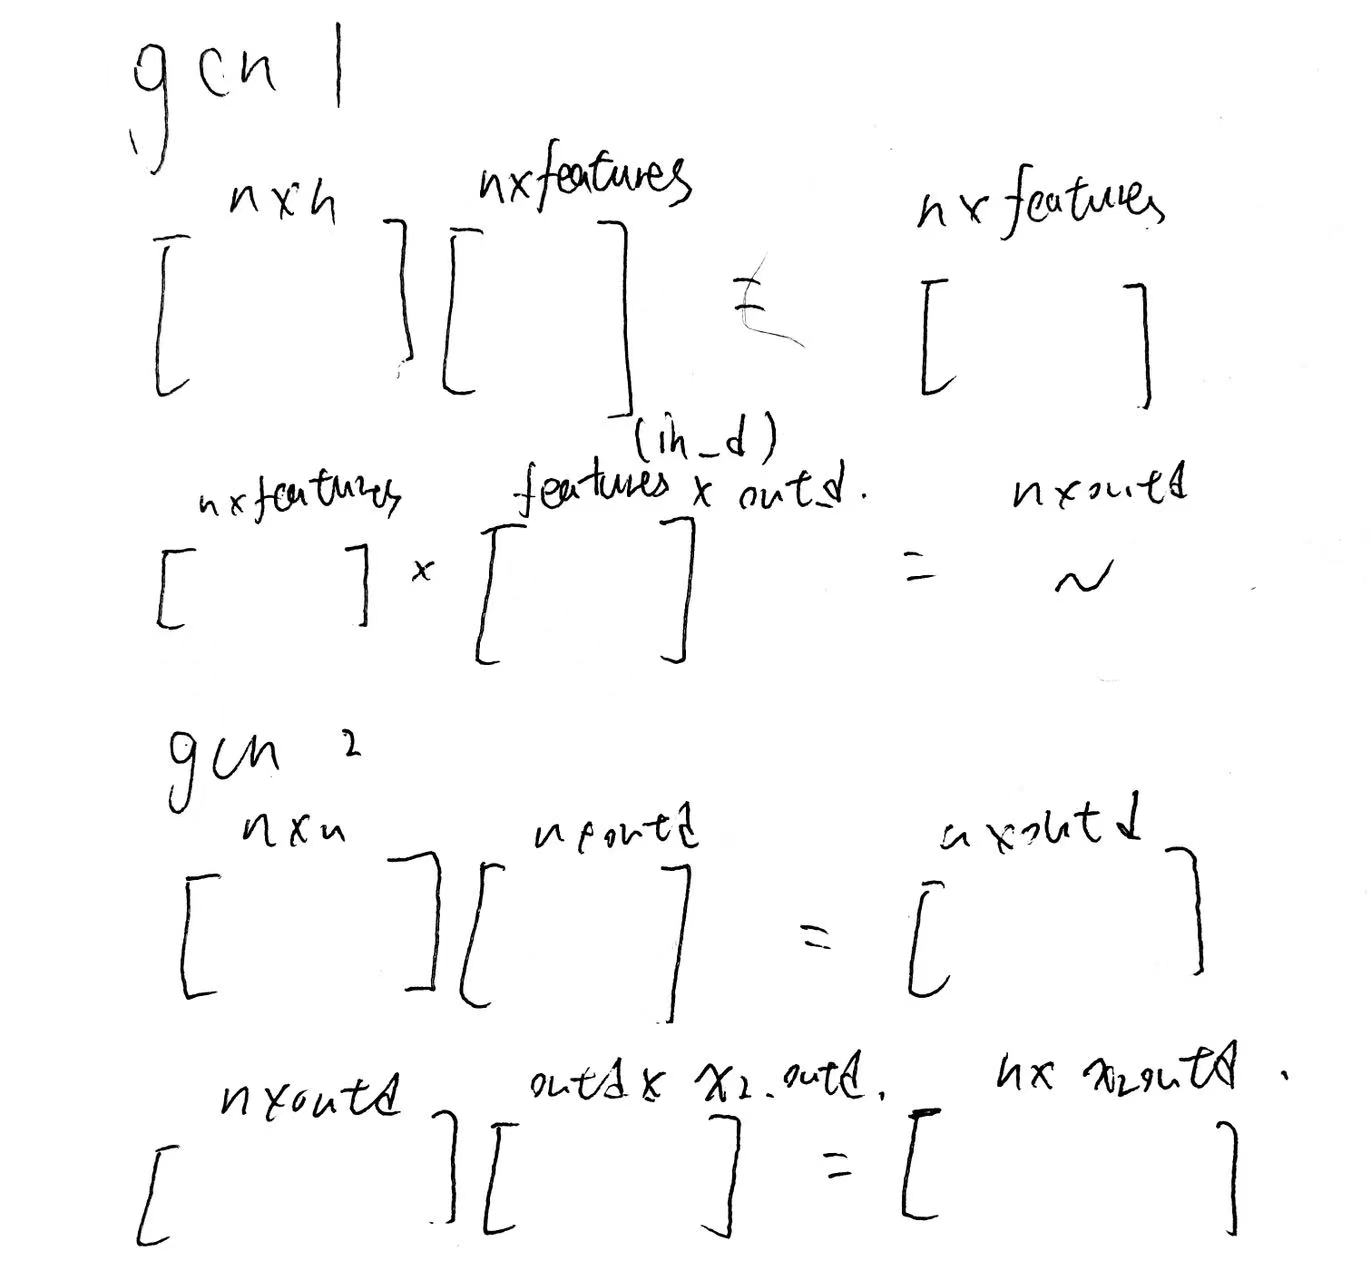 gcn 1
n x n   n x features   n x features
[ ] [ ] = [ ]
(in_d)
n x features   features x out_d.   n x outd
[ ] x [ ] = ~
gcn 2
n x n   n x outd   n x outd
[ ] [ ] = [ ]
n x outd   outd x x2.outd.   n x x2outd.
[ ] [ ] = [ ]